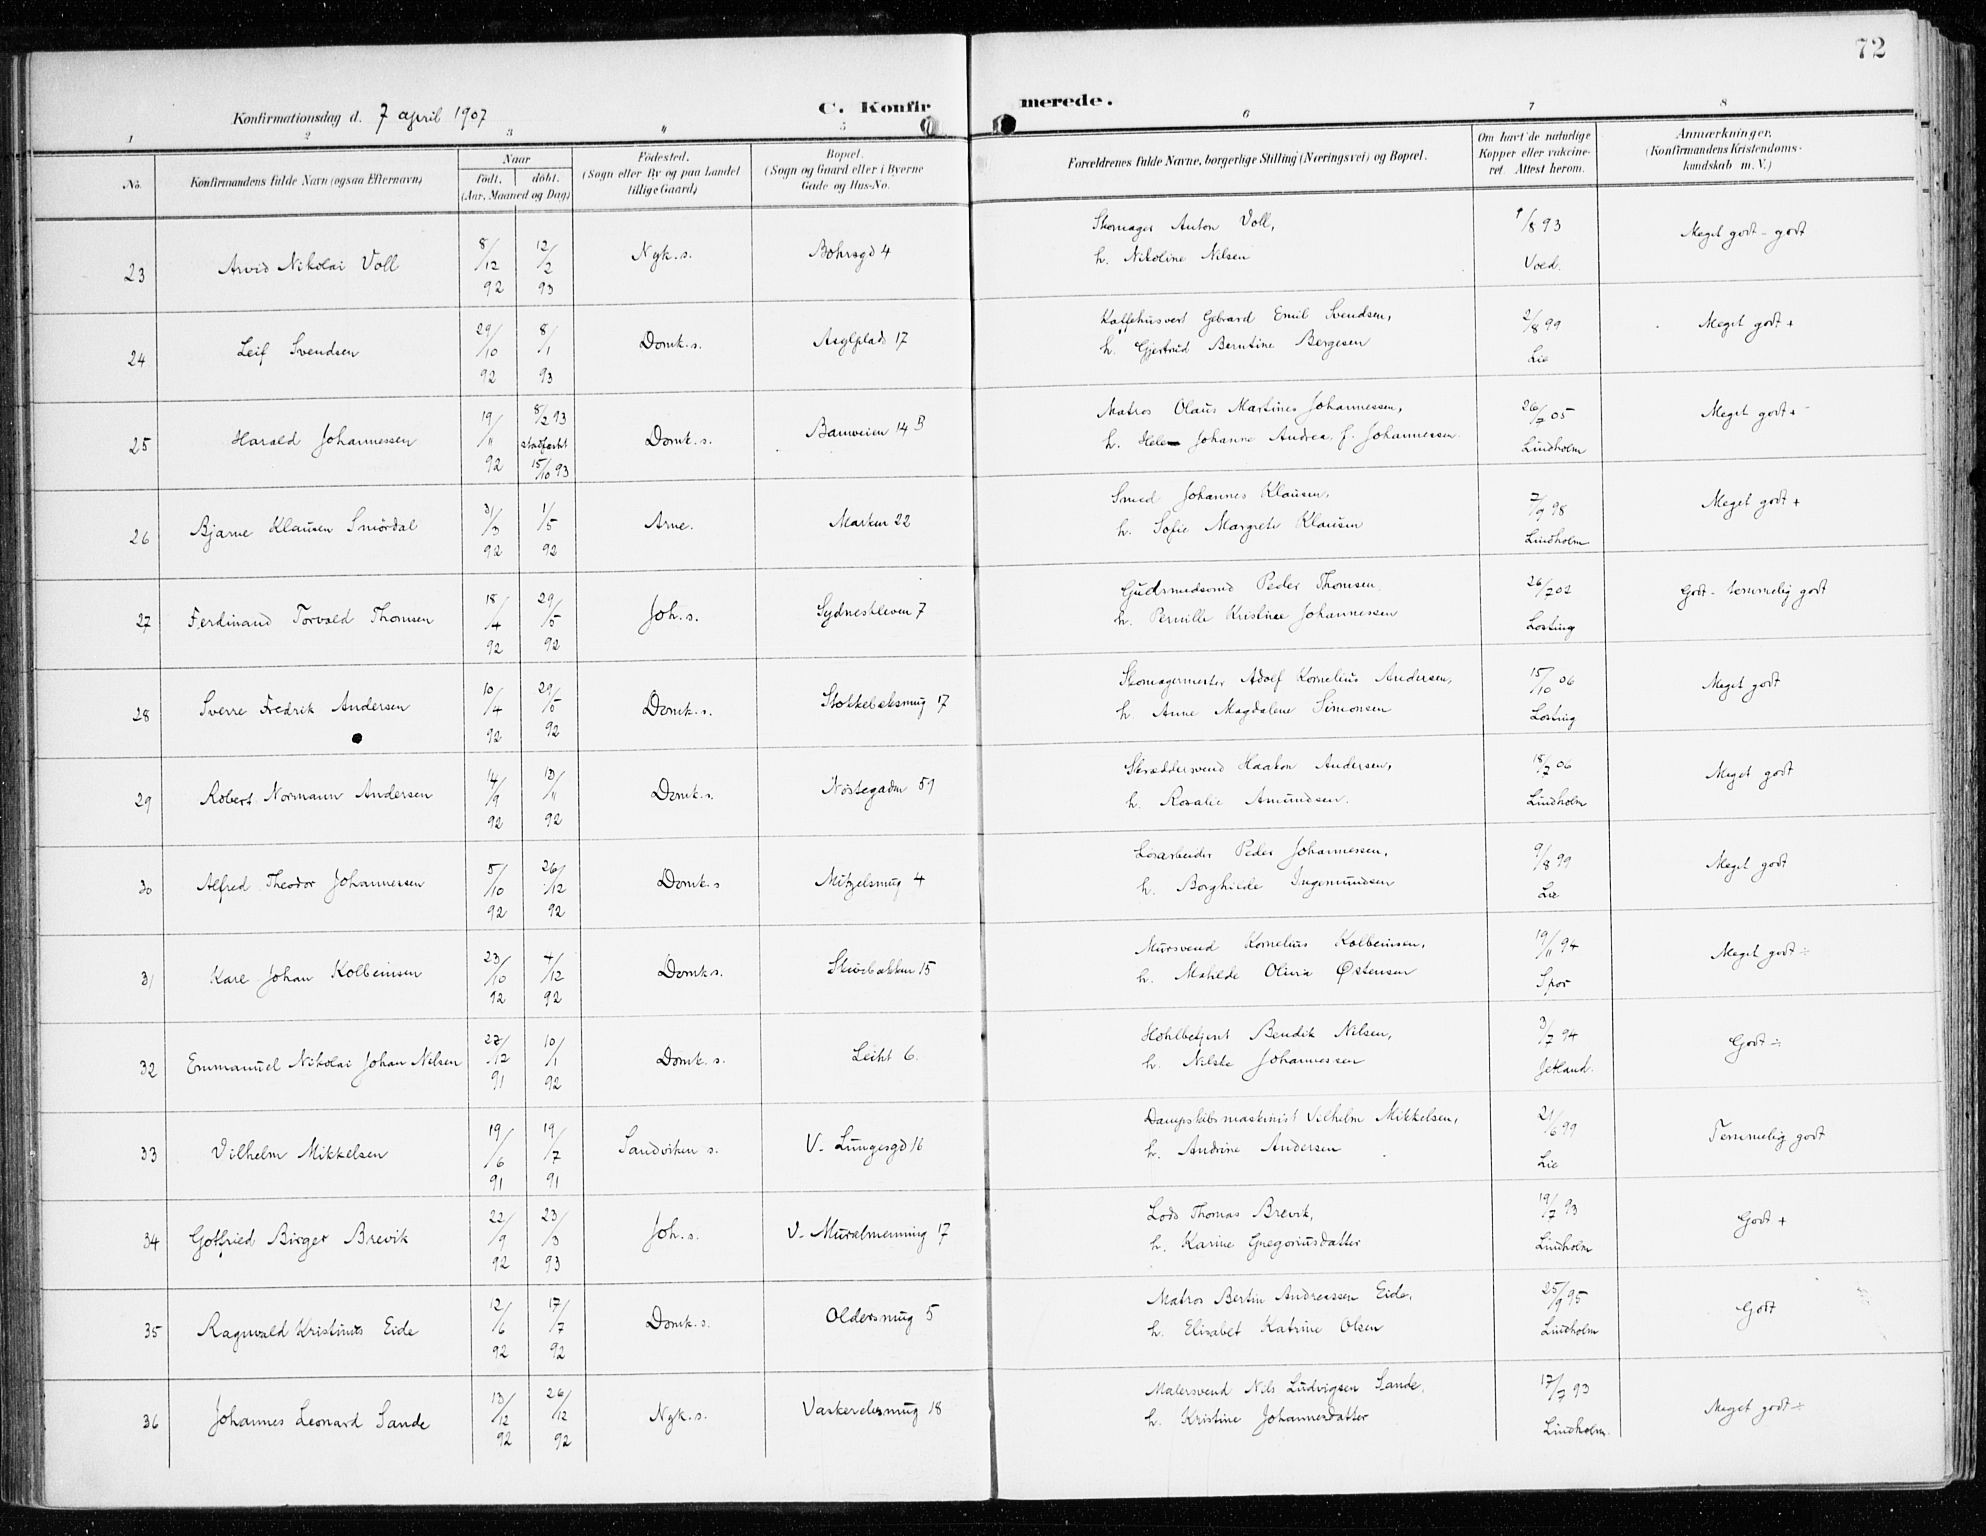 72
Konfirmationsdag d. 7 april 1907
C. Konfir merede.
1 2 3 " 5 6 7 8
No.
Konfirmandens fulde Navn (ogsaa Efternavn)
Naar
født. døbt.
(Aar, Maaned og Dag)
Fødested.
(Sogn eller By og paa Landet
tillige Gaard)
Bopæl.
(Sogn og Gaard eller i Byerne
Gade og Hus-No.
Forældrenes fulde Navne, borgerlige Stilling (Næringsvei) og Bopæl.
Om havt de naturlige
Kopper eller vakcine-
ret. Attest herom.
Anmærkninger.
(Konfirmandens Kristendoms-
kundskab m. V.)
23 Arvid Nikolai Voll 8/12 92 12/2 93 Nyk.s. Bohrsgd 4
Skomager Anton Voll,
h. Nikoline Nilsen
1/8 93
Voed.
Meget godt - godt
24 Leif Svendsen 29/10 92 8/1 93 Domk.s. Asylplads 17
Kaffehusvert Gebrard Emil Svendsen,
h. Gjertrud Berntine Bergesen
2/8 99
Lie
Meget godt +
25 Harald Johannessen 19/11 92 8/2 93 stadfæstet 15/10 93 Domk.s. Bamveien 14 B
Matros Olaus Martines Johannessen,
h. Johanne Andrea, f. Johannessen.
26/7 05
Lindholm
Meget godt + -
26 Bjarne Klausen Smørdal 31/3 92 1/5 92 Arne. Marken 22
Smed Johannes Klausen,
h. Sofie Margrete Klausen
7/9 98
Lindholm
Meget godt +
27 Ferdinand Torvald Thomsen 18/4 92 29/5 92 Joh.s. Sydneskleven 7
Guldsmedsvend Peder Thomsen,
h. Pernille Kristine Johannessen
26/7 02
Losting
Godt - temmelig godt
28 Sverre Fredrik Andersen 10/4 92 29/5 92 Domk.s. Stokkebeksmug 17
Skomagermester Adolf Kornelius Andersen,
h. Anne Magdalene Simonsen
15/10 06
Losting
Meget godt
29 Robert Normann Andersen 14/9 92 13/11 92 Domk.s. Nøstegaden 51
Skræddersvend Haakon Andersen,
h. Rosalie Amundsen.
18/7 06
Lindholm
Meget godt
30 Alfred Theodor Johannessen 5/10 92 26/12 92 Domk.s Mitzelsmug 4
Løsarbeider Peder Johannessen,
h. Borghilde Ingemundsen
9/8 99
Lie
Meget godt
31 Karl Johan Kolbeinsen 23/10 92 4/12 92 Domk.s. Skivebakken 15
Mursvend Kornelius Kolbeinsen,
h. Matilde Olivia Østensen
19/11 94
Spor
Meget godt ÷
32 Emmanuel Nikolai Johan Nilsen 27/12 91 10/1 92 Domk.s. Leitet 6.
Bendik Nilsen,
h. Nilste Johannessen
3/7 94
Jetland.
Godt ÷
33 Vilhelm Mikkelsen 19/6 91 19/7 91 Sandviken s. V. Lungegd 16
Dampskibsmaskinist Vilhelm Mikkelsen,
h. Andrine Andersen
21/6 99
Lie
Temmelig godt
34 Gotfried Birger Brevik 22/9 92 23/3 93 Joh.s. V. Muralmenning 17
Lods Thomas Brevik,
h. Karine Gregoriusdatter
19/7 93
Lindholm
Godt +
35 Ragnvald Kristinus Eide 12/6 92 17/7 92 Domk.s. Oldersmug 5
Matros Bertin Andreassen Eide,
h. Elisabet Katrine Olsen
25/9 95
Lindholm
Godt
36 Johannes Leonard Sande 13/12 92 26/12 92 Nyk.s. Vaskerelvsmug 18
Malersvend Nils Ludvigsen Sande,
h. Kristine Johannesdatter
17/7 93
Lindholm.
Meget godt ÷